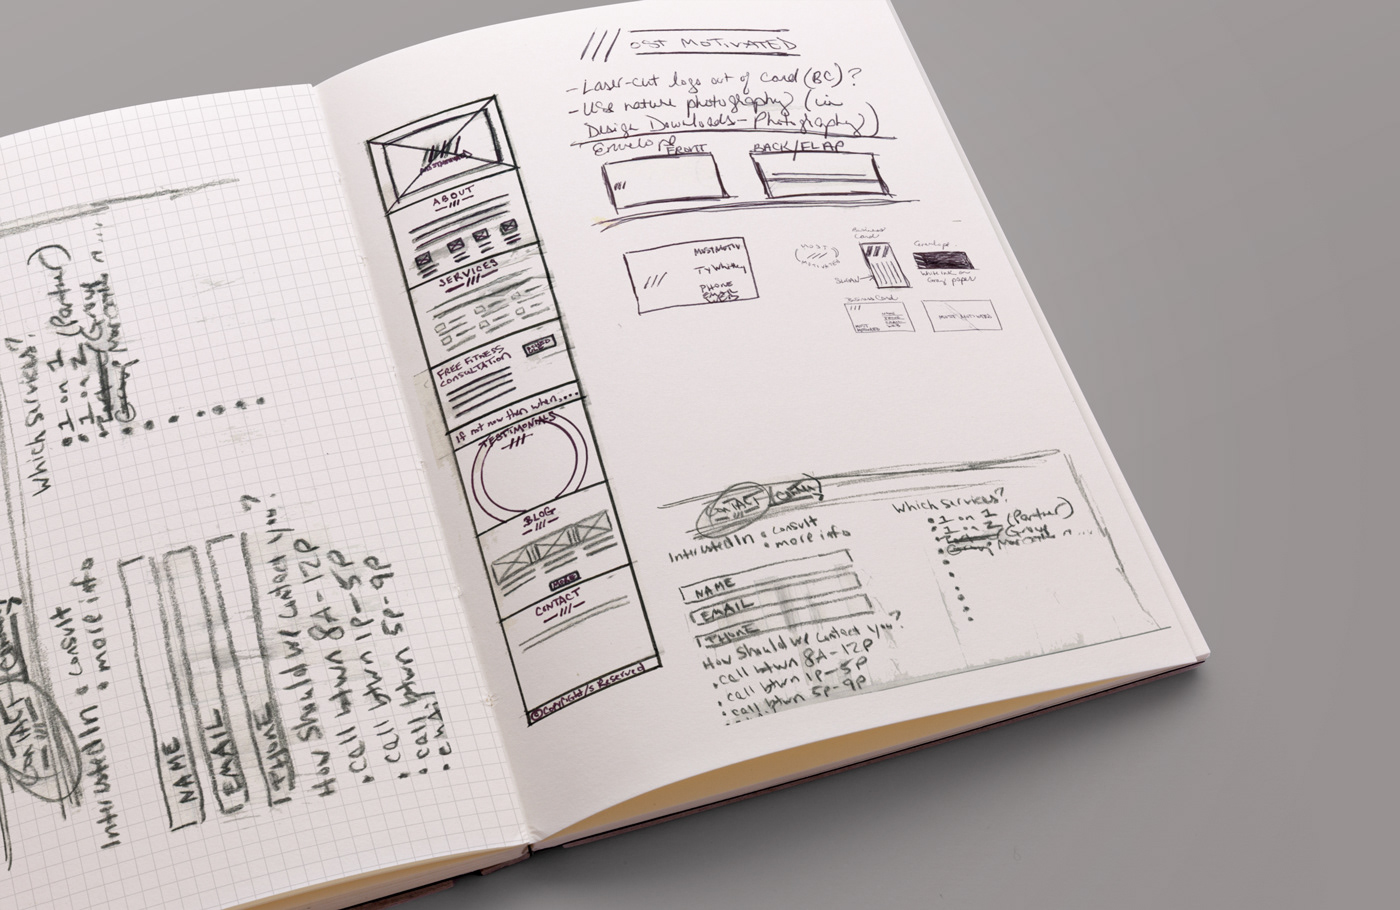 Which Services?
• 1 on 1 (Partner)
• 1 on 2 (Group
CONTACT
IntrustedIn • consult
• more info
NAME
EMAIL
PHONE
How Should we Contact you?
• call btwn 8A-12P
• call btwn 1P-5P
• call btwn 5P-9P
• email
ABOUT
SERVICES
FREE FITNESS
CONSULTATION
If not now then when,...
TESTIMONIALS
BLOG
MORE
CONTACT
© Copyright/s Reserved
/// OST MOTIVATED
- Laser-cut logo out of Card (BC)?
- Use nature photography (in
Design Downloads - Photography)
Envelop
FRONT
BACK/FLAP
///
MOSTMOTIV
PHONE
EMAIL
MOST
MOTIVATED
Business
Card
Envelope
White ink on
Grey paper
Business Card
MOST
MOTIVATED
MOST MOTIVATED
CONTACT
IntrustedIn • consult
• more info
NAME
EMAIL
PHONE
How Should we Contact you?
• call btwn 8A-12P
• call btwn 1P-5P
• call btwn 5P-9P
Which Services?
• 1 on 1
• 1 on 2 (Partner)
(Group